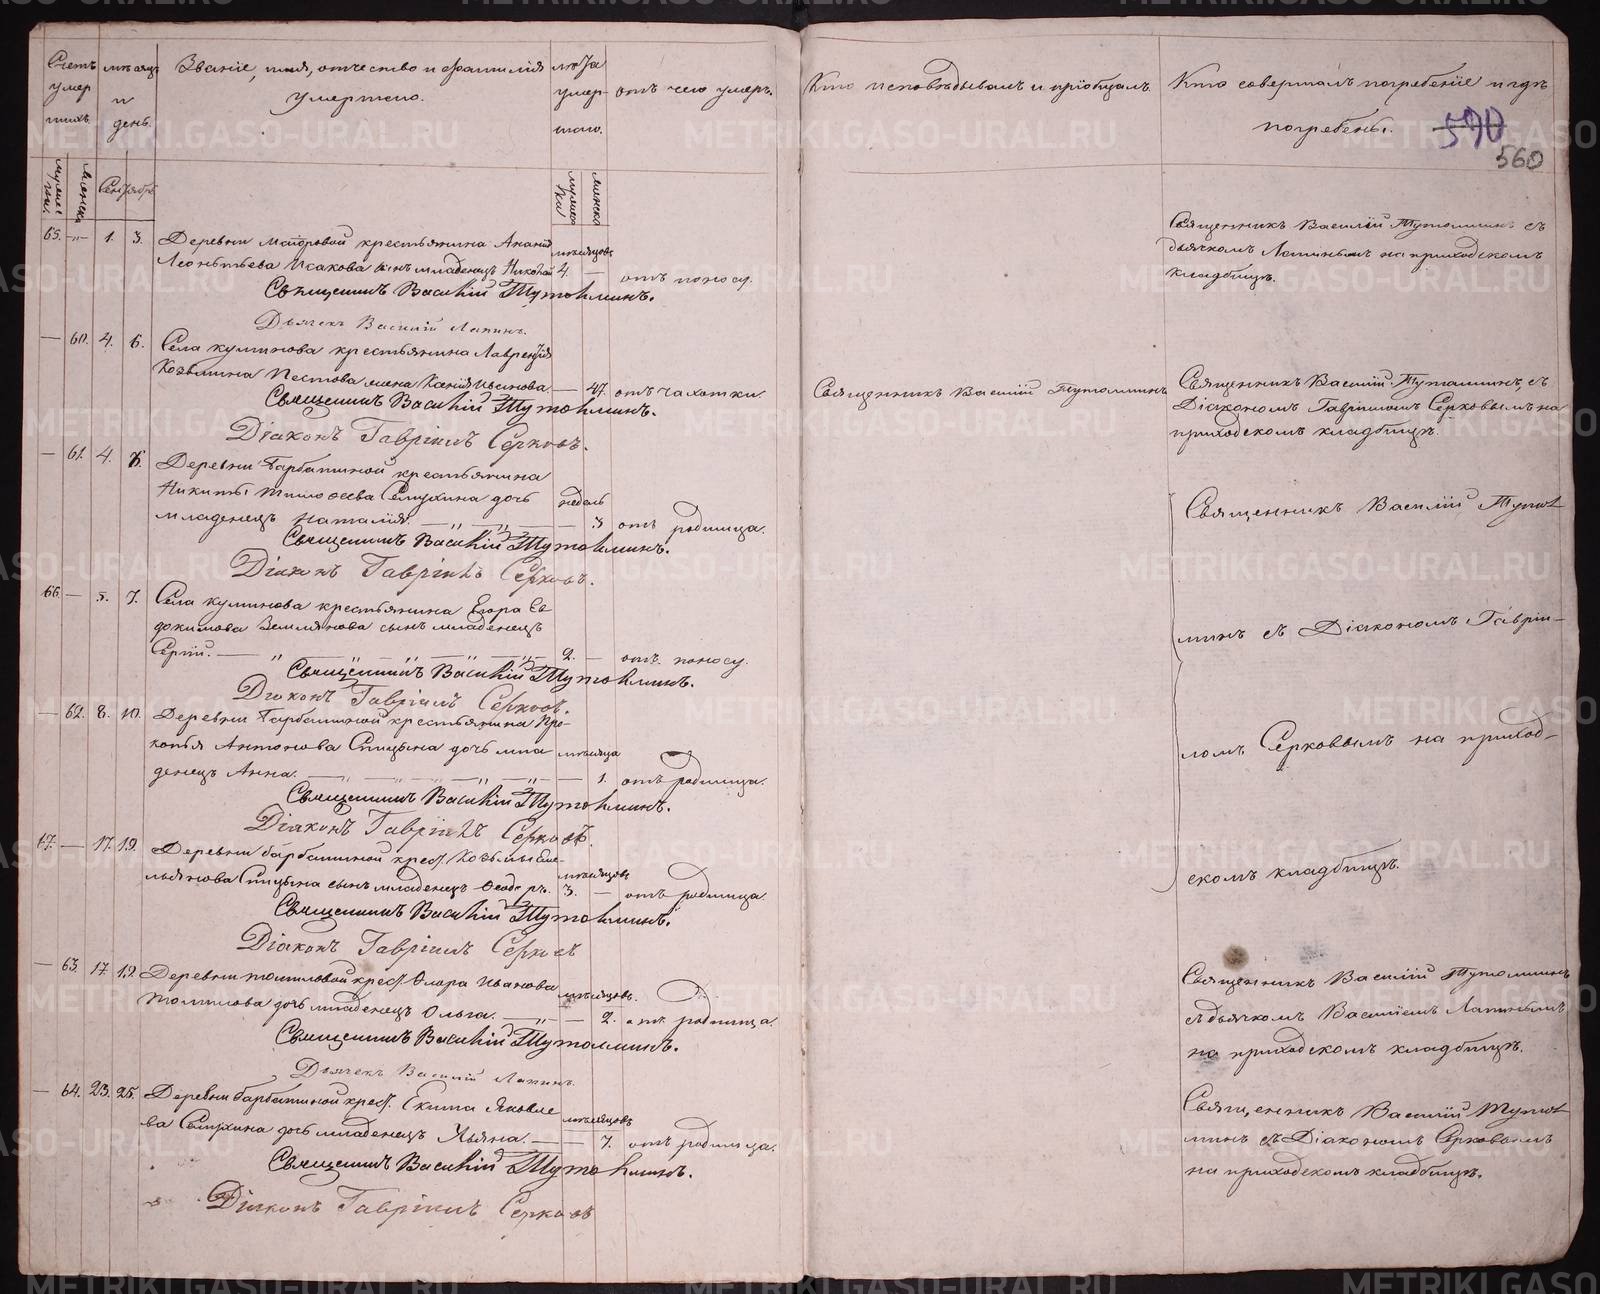 Счетъ умер шихъ.
мѣсяцъ и день.
Званіе, имя, отчество и фамилія умершаго.
лѣта умер- шаго.
отъ чего умеръ.
Кто исповѣдывалъ и пріобщалъ.
Кто совершалъ погребеніе и гдѣ погребены.
590
560
мужеска
женска
Сентябрь
мужеска
женска
65. — 1. 3. Деревни крестьянина Ананія мѣсяцовъ
Леонтьева Исакова сынъ младенецъ Николай 4. — отъ поносу.
Священникъ Василій Тутолминъ.
Дьячекъ Василій Лапинъ.
Священникъ Василій Тутолминъ съ
дьячкомъ Лапинымъ на приходскомъ
кладбищѣ.
— 60. 4. 6. Села Куминова крестьянина Лаврентія
Козьмина Пестова жена Ксенія Иванова — 47. отъ чахотки.
Священникъ Василій Тутолминъ.
Діаконъ Гавріилъ Серковъ.
Священникъ Василій Тутолминъ
Священникъ Василій Тутолминъ, съ
Діакономъ Гавріиломъ Серковымъ на
приходскомъ кладбищѣ.
— 61. 4. 6. Деревни Барбашиной крестьянина
Никиты дочь недель
младенецъ Наталія. — 3 отъ родимца.
Священникъ Василій Тутолминъ.
Діаконъ Гавріилъ Серковъ.
66. — 5. 7. Села Куминова крестьянина Егора Ев
докимова Землянова сынъ младенецъ
Сергій. — 2. — отъ поносу.
Священникъ Василій Тутолминъ.
Діаконъ Гавріилъ Серковъ.
— 62. 8. 10. Деревни Барбашиной крестьянина Про-
копья Антонова Спицына дочь мла мѣсяца
денецъ Анна. — 1. отъ родимца.
Священникъ Василій Тутолминъ.
Діаконъ Гавріилъ Серковъ.
67. — 17. 19. Деревни Барбашиной крест. Козьмы Еме- мѣсяцовъ
льянова Спицына сынъ младенецъ Ѳеодоръ. 3. — отъ родимца.
Священникъ Василій Тутолминъ.
Діаконъ Гавріилъ Серковъ
Священникъ Василій Тутол
минъ съ Діакономъ Гаврiи-
ломъ Серковымъ на приход-
скомъ кладбищѣ.
— 63. 17 19. Деревни Томиловой крест. Флора Иванова мѣсяцовъ.
Томилова дочь младенецъ Ольга. — 2. отъ родимца.
Священникъ Василій Тутолминъ.
Дьячекъ Василій Лапинъ.
Священникъ Василій Тутолминъ
съ дьячкомъ Василіемъ Лапинымъ
на приходскомъ кладбищѣ.
— 64. 23. 25. Деревни Барбашиной крест. Екима Яковле мѣсяцовъ
ва дочь младенецъ Ульяна. — 7. отъ родимца.
Священникъ Василій Тутолминъ.
Діаконъ Гавріилъ Серковъ
Священникъ Василій Тутол
минъ съ Діакономъ Серковымъ
на приходскомъ кладбищѣ.
METRIKI.GASO-URAL.RU